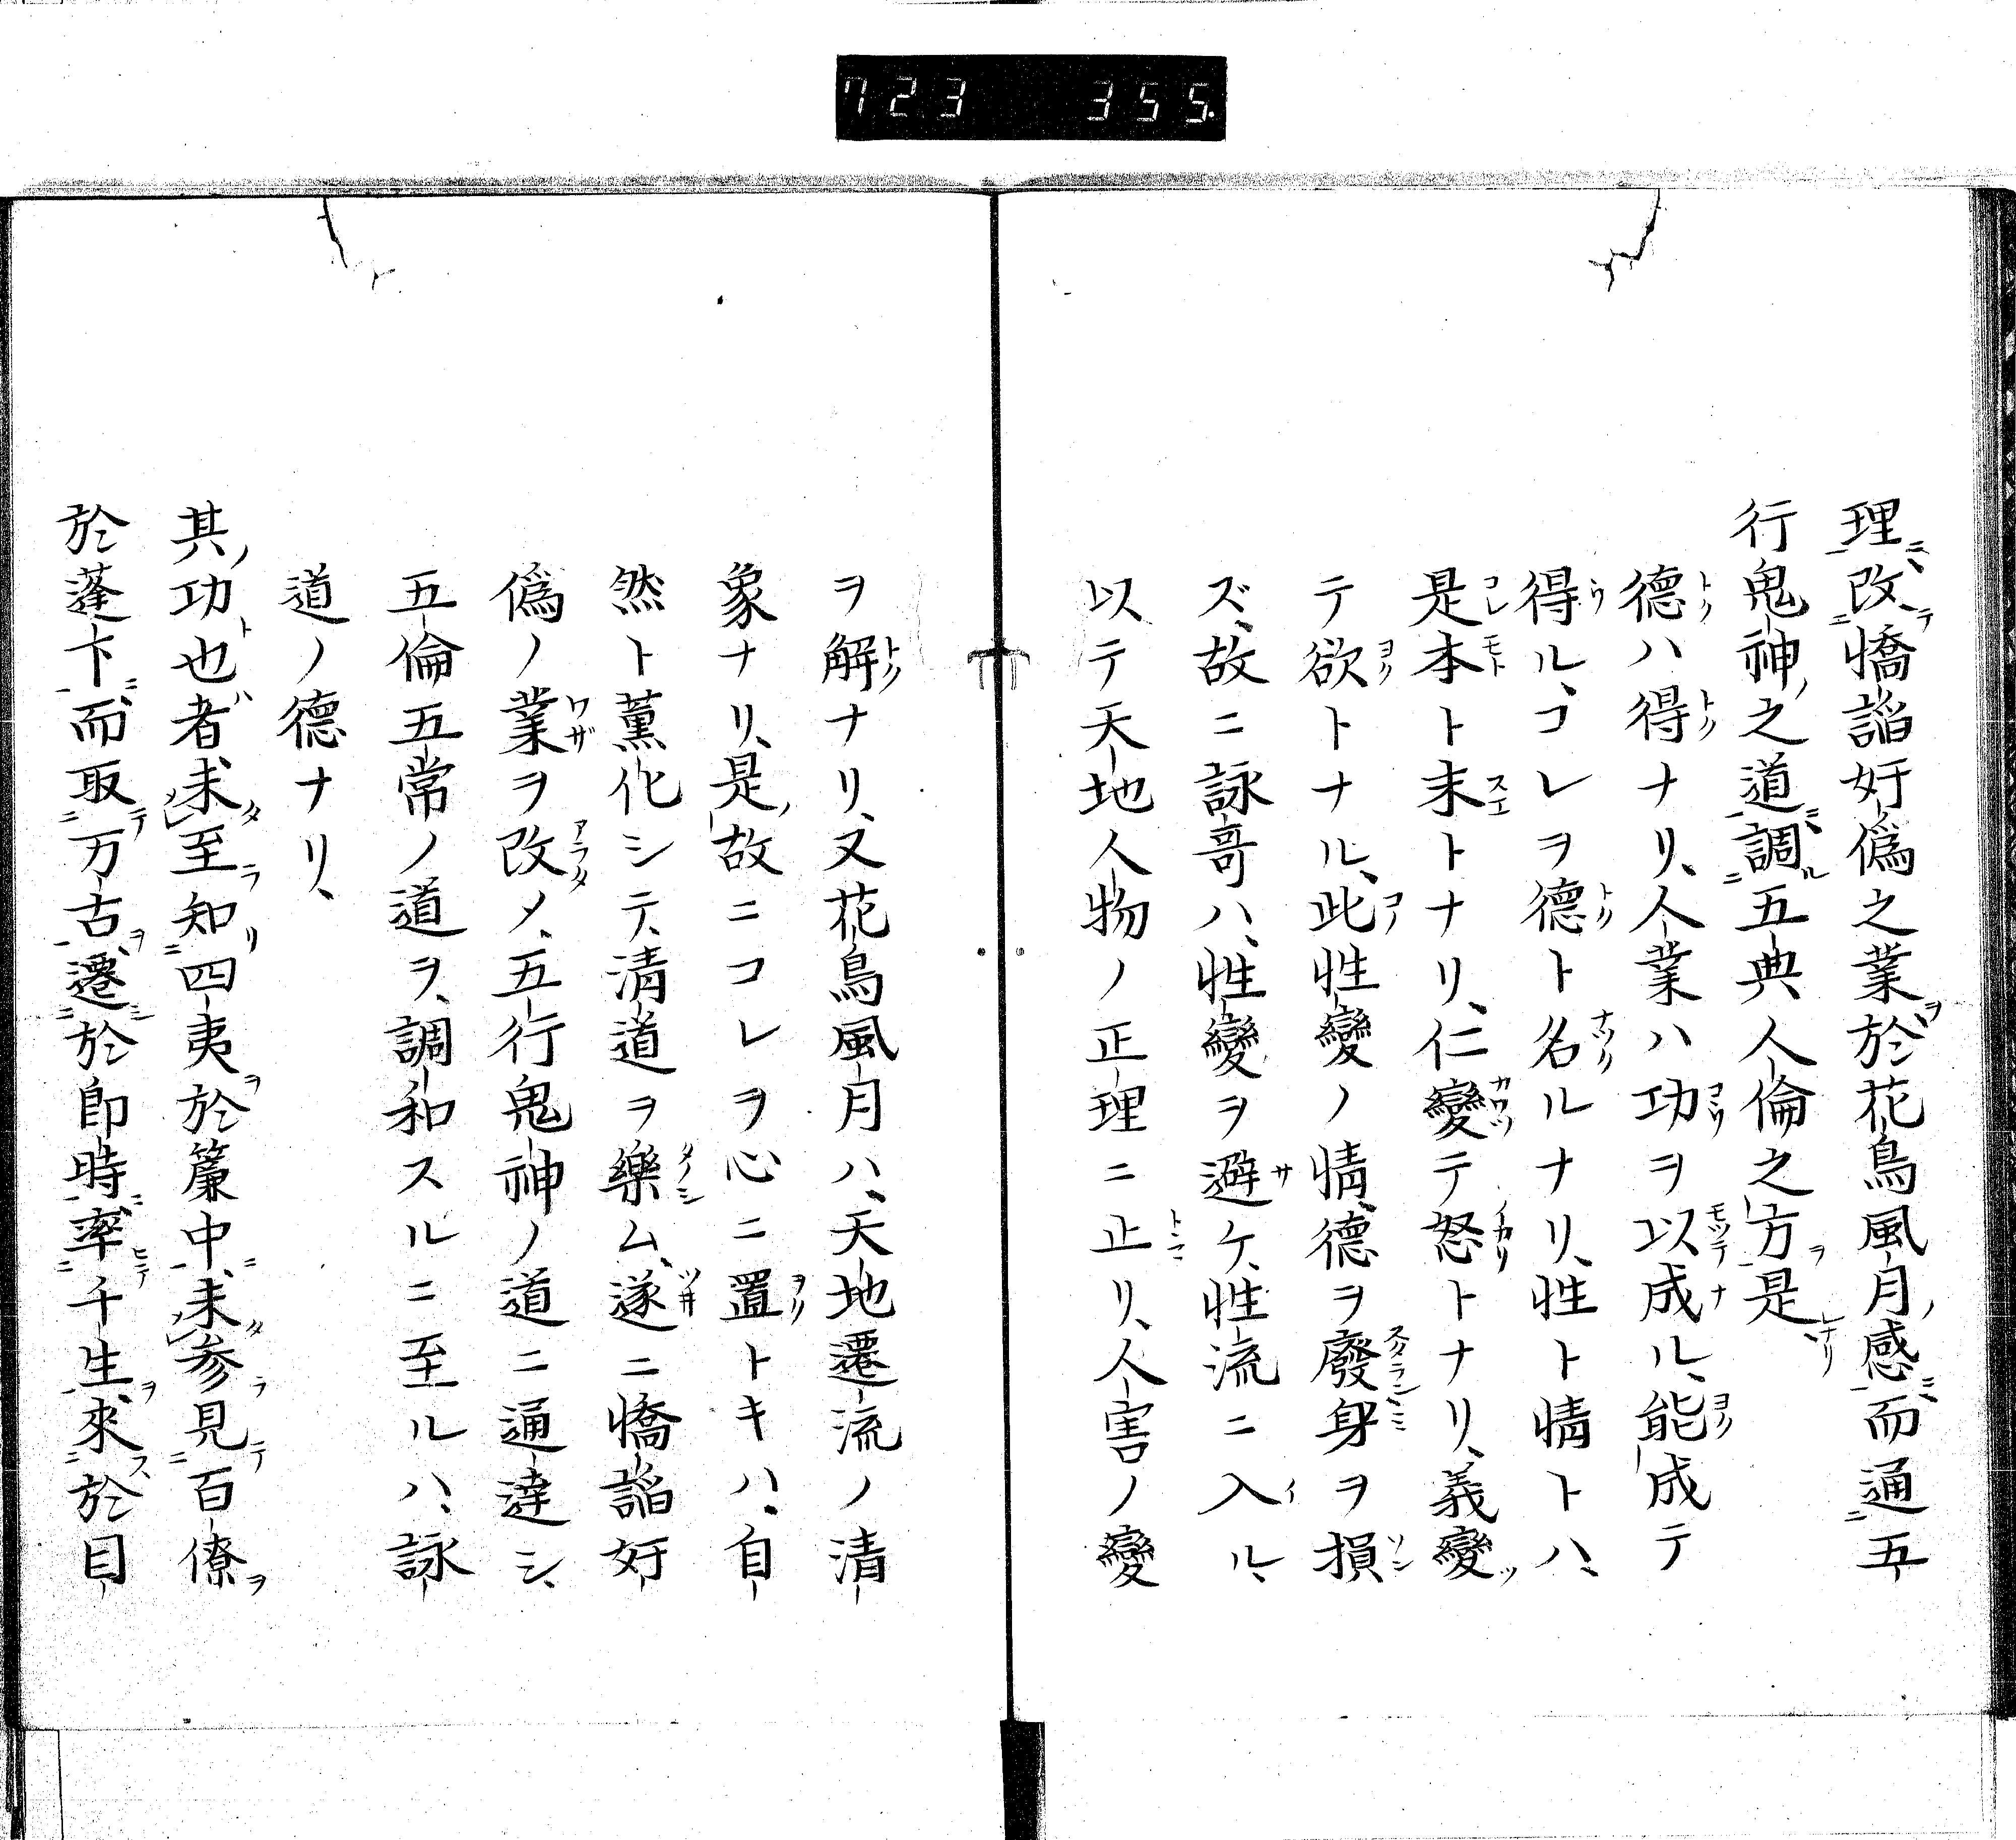 723 355
理改憍諂奸僞之業於花鳥風月感而通五
行鬼神之道調五典人倫之方是
德ハ得ナリ、人業ハ功ヲ以成ル、能成テ
得ル、コレヲ德ト名ルナリ、性ト情トハ、
是本ト末トナリ、仁變テ怒トナリ、義變
テ欲トナル、此性變ノ情、德ヲ廢身ヲ損
ズ、故ニ詠哥ハ、性變ヲ避ケ、性流ニ入ル、
以テ天地人物ノ正理ニ止リ、人害ノ變
ヲ解ナリ、又花鳥風月ハ、天地遷流ノ清
象ナリ、是故ニコレヲ心ニ置トキハ、自
然ト薫化シテ、清道ヲ樂ム、遂ニ憍諂奸
僞ノ業ヲ改メ、五行鬼神ノ道ニ通達シ、
五倫五常ノ道ヲ、調和スルニ至ルハ、詠
道ノ德ナリ、
其功也者未至知四夷於簾中、未参見百僚
於蓬下而取万古遷於即時率千生來於目